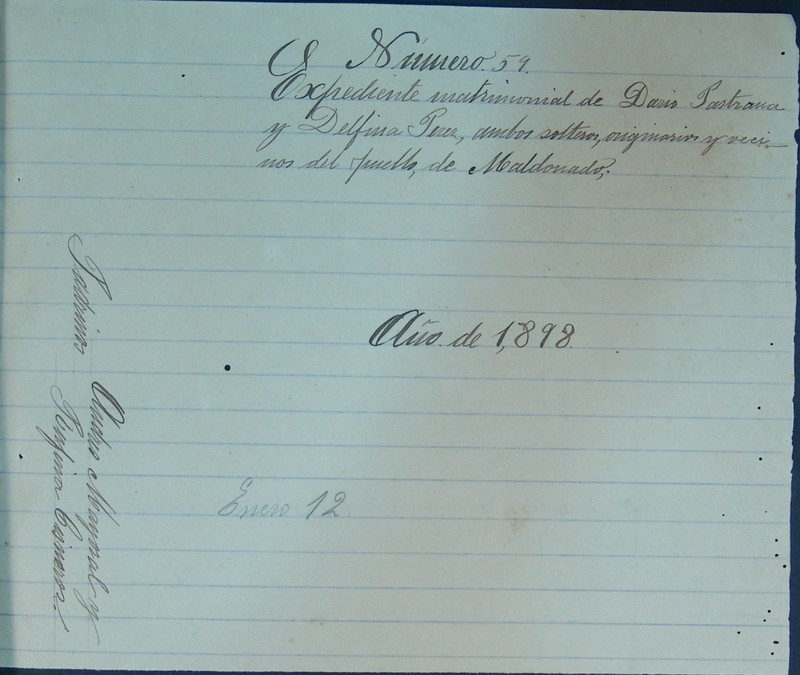 Número. 59.
Expediente matrimonial de Dario Pastrana
y Delfina Perez, ambos solteros, originarios y veci-
nos del pueblo, de Maldonado,.
Año. de 1,898.
Enero 12.
Padrinos Andres Mayoral y
Rufina Cisneros